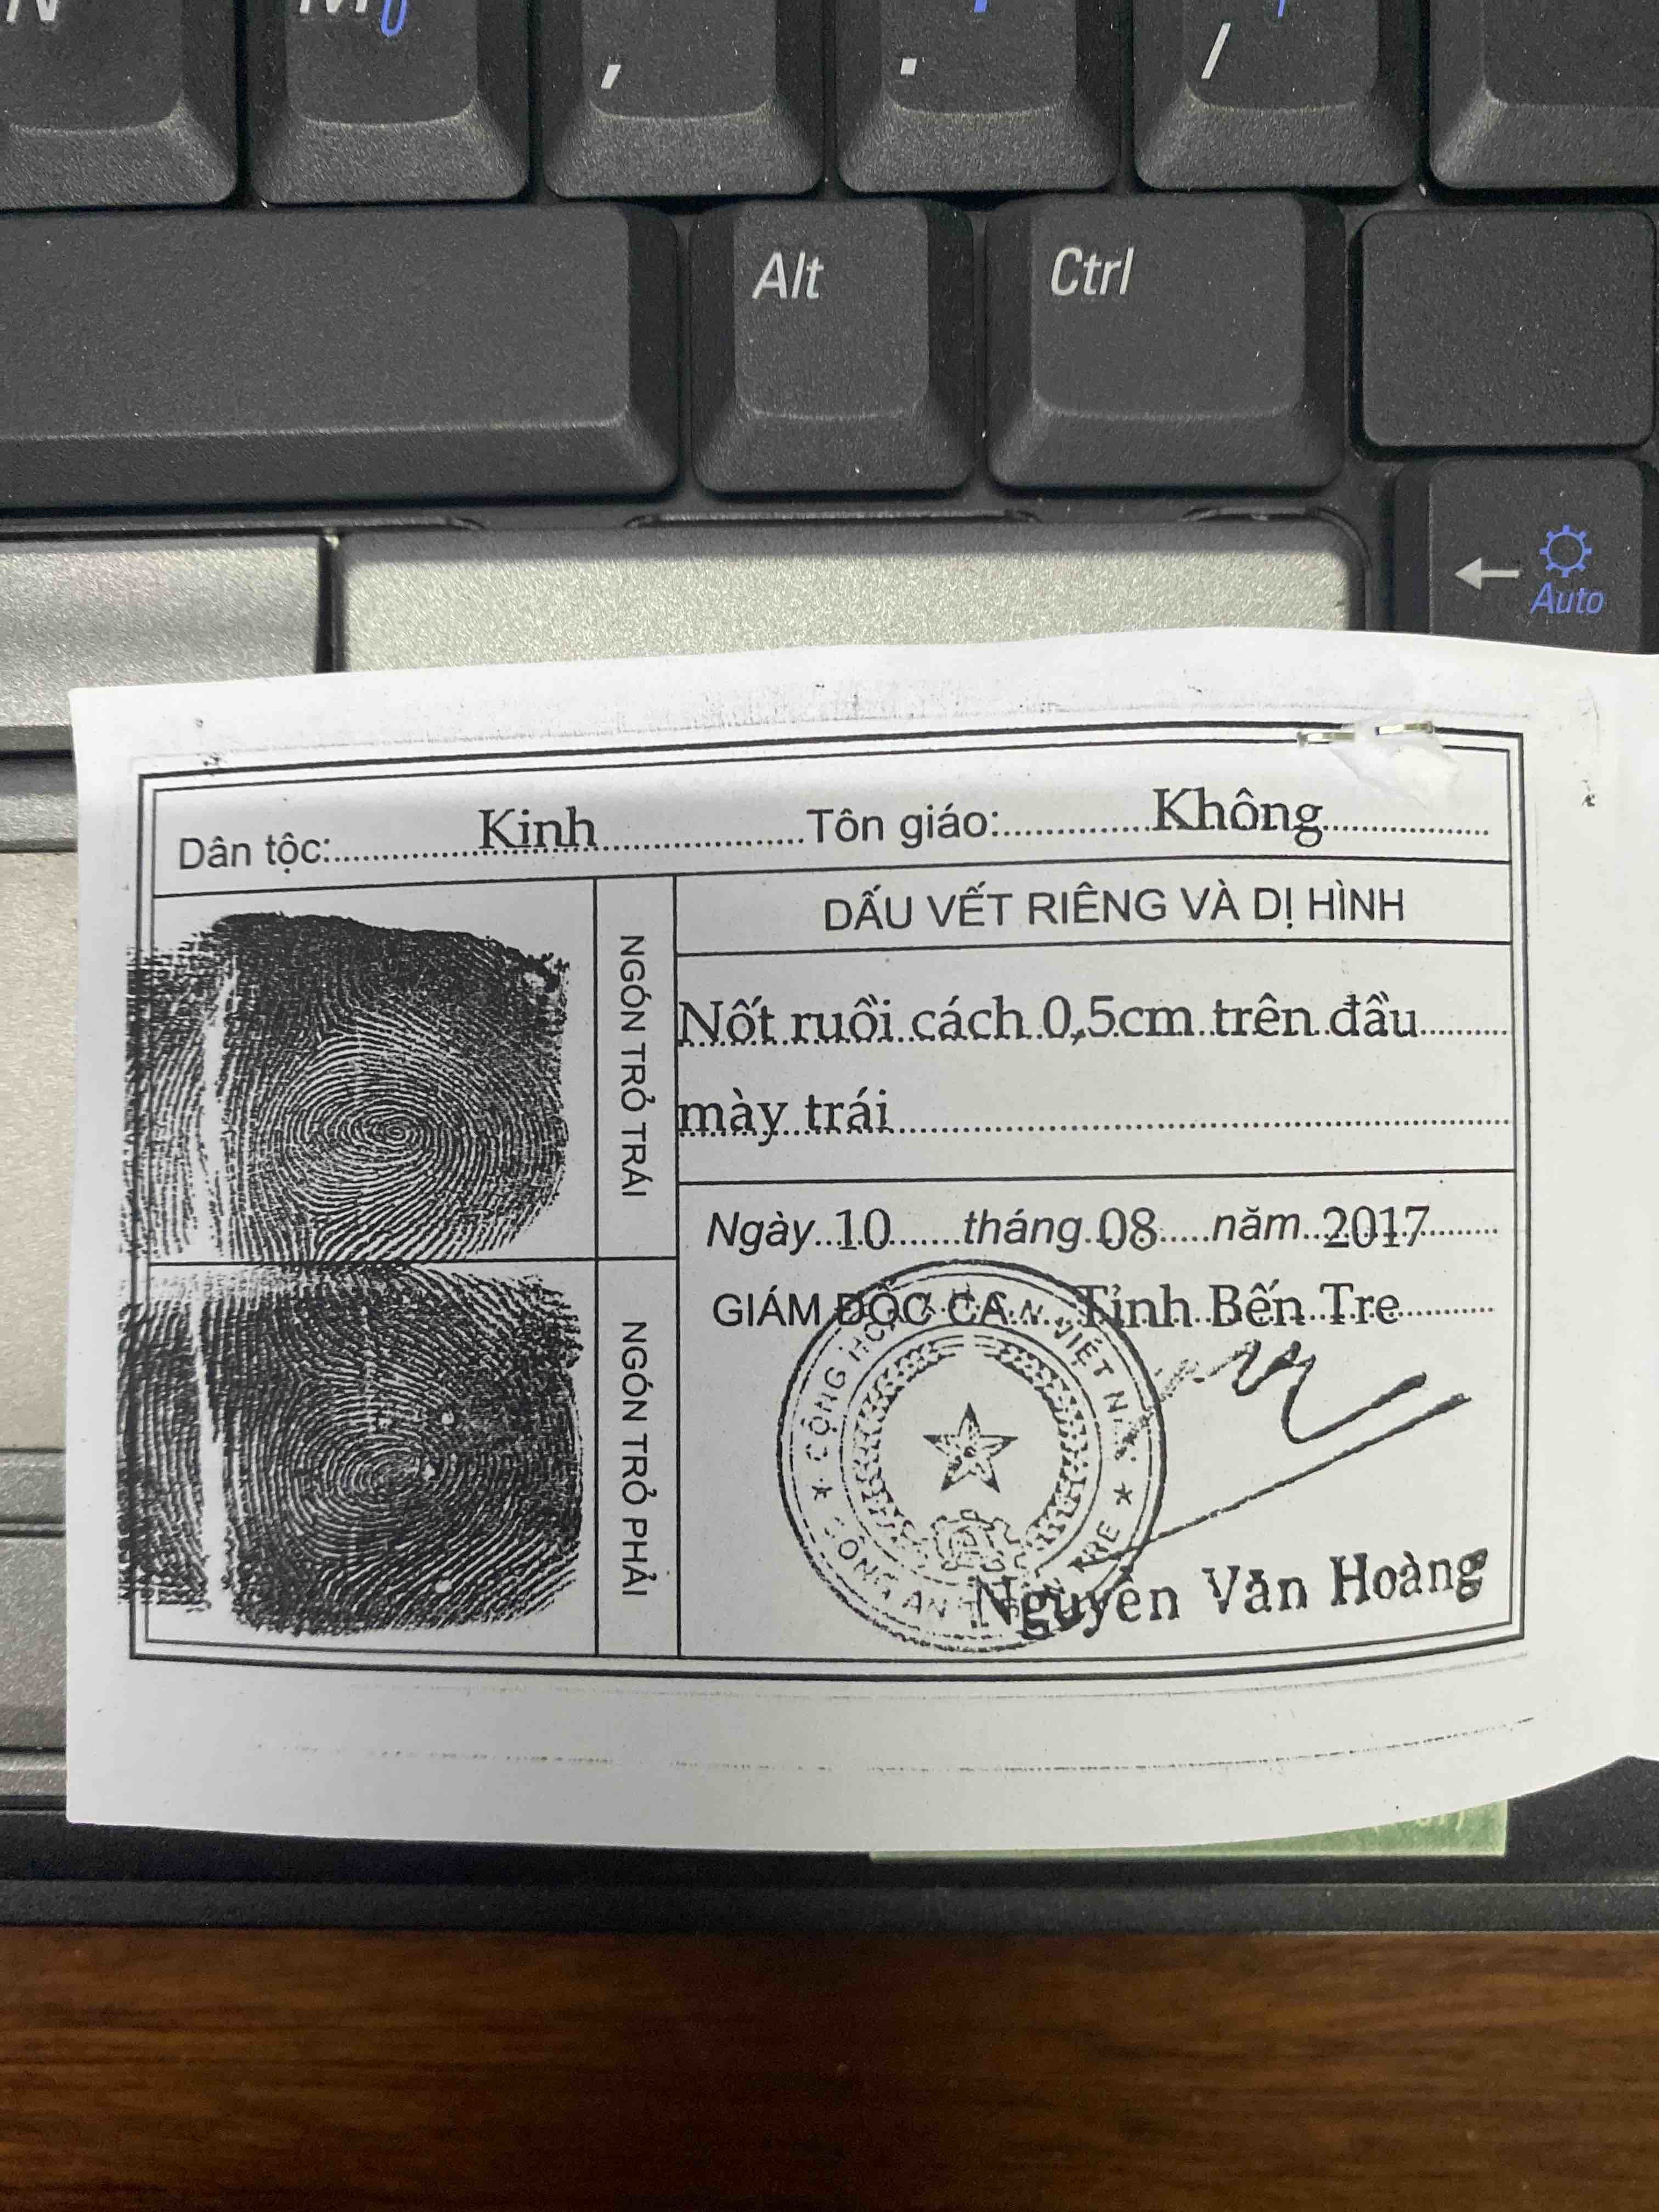 Alt
Ctrl
Auto
Dân tộc: Kinh Tôn giáo: Không
NGÓN TRỎ TRÁI
DẤU VẾT RIÊNG VÀ DỊ HÌNH
Nốt ruồi cách 0,5cm trên đầu
mày trái
Ngày 10 tháng 08 năm 2017
GIÁM ĐỐC CA Tỉnh Bến Tre
NGÓN TRỎ PHẢI
CỘNG VIỆT
CÔNG AN TRE
Nguyễn Văn Hoàng